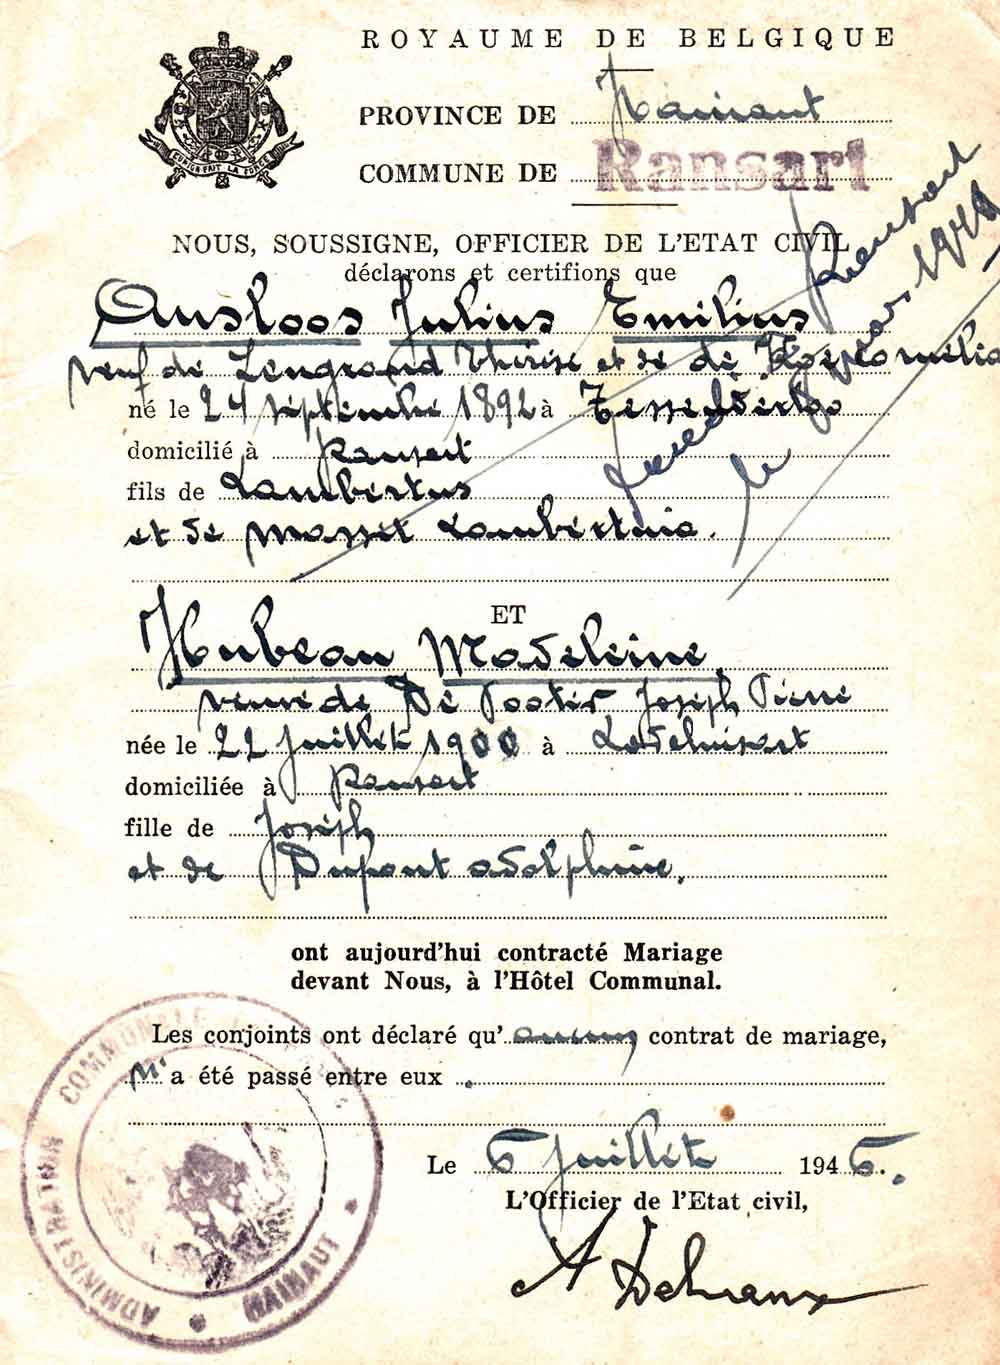 ROYAUME DE BELGIQUE
PROVINCE DE Hainaut
COMMUNE DE Ransart
L'UNION FAIT LA FORCE
NOUS, SOUSSIGNE, OFFICIER DE L'ETAT CIVIL
déclarons et certifions que
Ausloos Julius Emilius
veuf de Lengrand Thérèse et de de
né le 24 septembre 1892 à Tessenderloo
domicilié à Ransart
fils de Lambertus
et de Masset Lambertina.
Ransart
le
ET
Hubeau Madeleine,
veuve de De Pooter Joseph Pierre
née le 22 juillet 1900 à Lodelinsart
domiciliée à Ransart
fille de Joseph
et de Dupont Adolphine.
ont aujourd'hui contracté Mariage
devant Nous, à l'Hôtel Communal.
Les conjoints ont déclaré qu'aucun contrat de mariage,
n' a été passé entre eux.
Le 6 juillet 1946.
L'Officier de l'Etat civil,
ADMINISTRATION COMMUNALE
HAINAUT